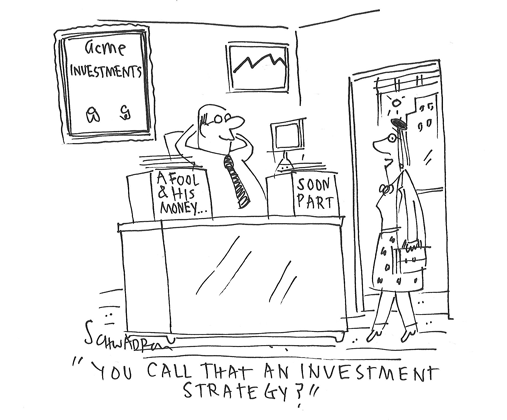 acme
INVESTMENTS
A FOOL
& HIS
MONEY...
SOON
PART
SCHWADRON
"YOU CALL THAT AN INVESTMENT
STRATEGY?"